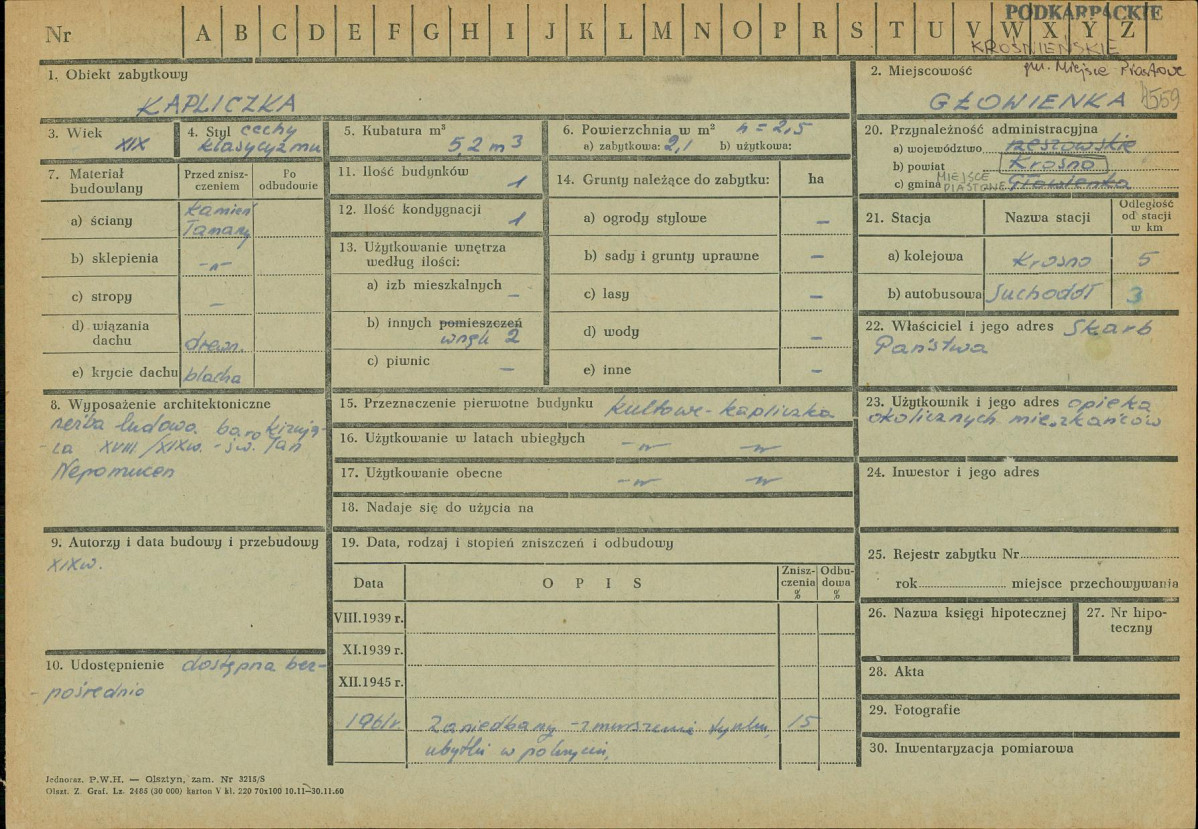 PODKARPACKIE
Nr A B C D E F G H I J K L M N O P R S T U V W X Y Z
KROŚNIEŃSKIE
gm. Miejsce Piastowe
1. Obiekt zabytkowy
KAPLICZKA
2. Miejscowość
GŁOWIENKA
1559
3. Wiek
XIX
4. Styl cechy
klasycyzmu
5. Kubatura m³
5,2 m3
6. Powierzchnia w m² h = 2,5
a) zabytkowa: 2,1 b) użytkowa:
20. Przynależność administracyjna
a) województwo rzeszowskie
b) powiat Krosno
c) gmina MIEJSCE PIASTOWE Głowienka
7. Materiał budowlany
Przed zniszczeniem
Po odbudowie
a) ściany kamień
łamany
b) sklepienia -"-
c) stropy –
d) wiązania
dachu drewn.
e) krycie dachu blacha
11. Ilość budynków 1
12. Ilość kondygnacji 1
13. Użytkowanie wnętrza
według ilości:
a) izb mieszkalnych –
b) innych pomieszczeń
wnęk 2
c) piwnic –
14. Grunty należące do zabytku: ha
a) ogrody stylowe –
b) sady i grunty uprawne –
c) lasy –
d) wody –
e) inne –
21. Stacja Nazwa stacji Odległość od stacji w km
a) kolejowa Krosno 5
b) autobusowa Suchodół 3
22. Właściciel i jego adres Skarb
Państwa
8. Wyposażenie architektoniczne
rzeźba ludowa barokizują-
-ca XVIII/XIXw. - św. Jan
Nepomucen
15. Przeznaczenie pierwotne budynku kultowe - kapliczka
16. Użytkowanie w latach ubiegłych -"- -"-
17. Użytkowanie obecne -"- -"-
18. Nadaje się do użycia na
23. Użytkownik i jego adres opieka
okolicznych mieszkańców
24. Inwestor i jego adres
9. Autorzy i data budowy i przebudowy
XIXw.
19. Data, rodzaj i stopień zniszczeń i odbudowy
Data O P I S Zniszczenia % Odbudowa %
VIII.1939 r.
XI.1939 r.
XII.1945 r.
1961r. Zaniedbany - zmurszenie tynku, 15
ubytki w pokryciu,
10. Udostępnienie dostępna bez-
- pośrednio
25. Rejestr zabytku Nr
rok miejsce przechowywania
26. Nazwa księgi hipotecznej
27. Nr hipo-
teczny
28. Akta
29. Fotografie
30. Inwentaryzacja pomiarowa
Jednoraz. P.W.H. — Olsztyn, zam. Nr 3215/S
Olszt. Z. Graf. Lz. 2465 (30 000) karton V kl. 220 70x100 10.11—30.11.60